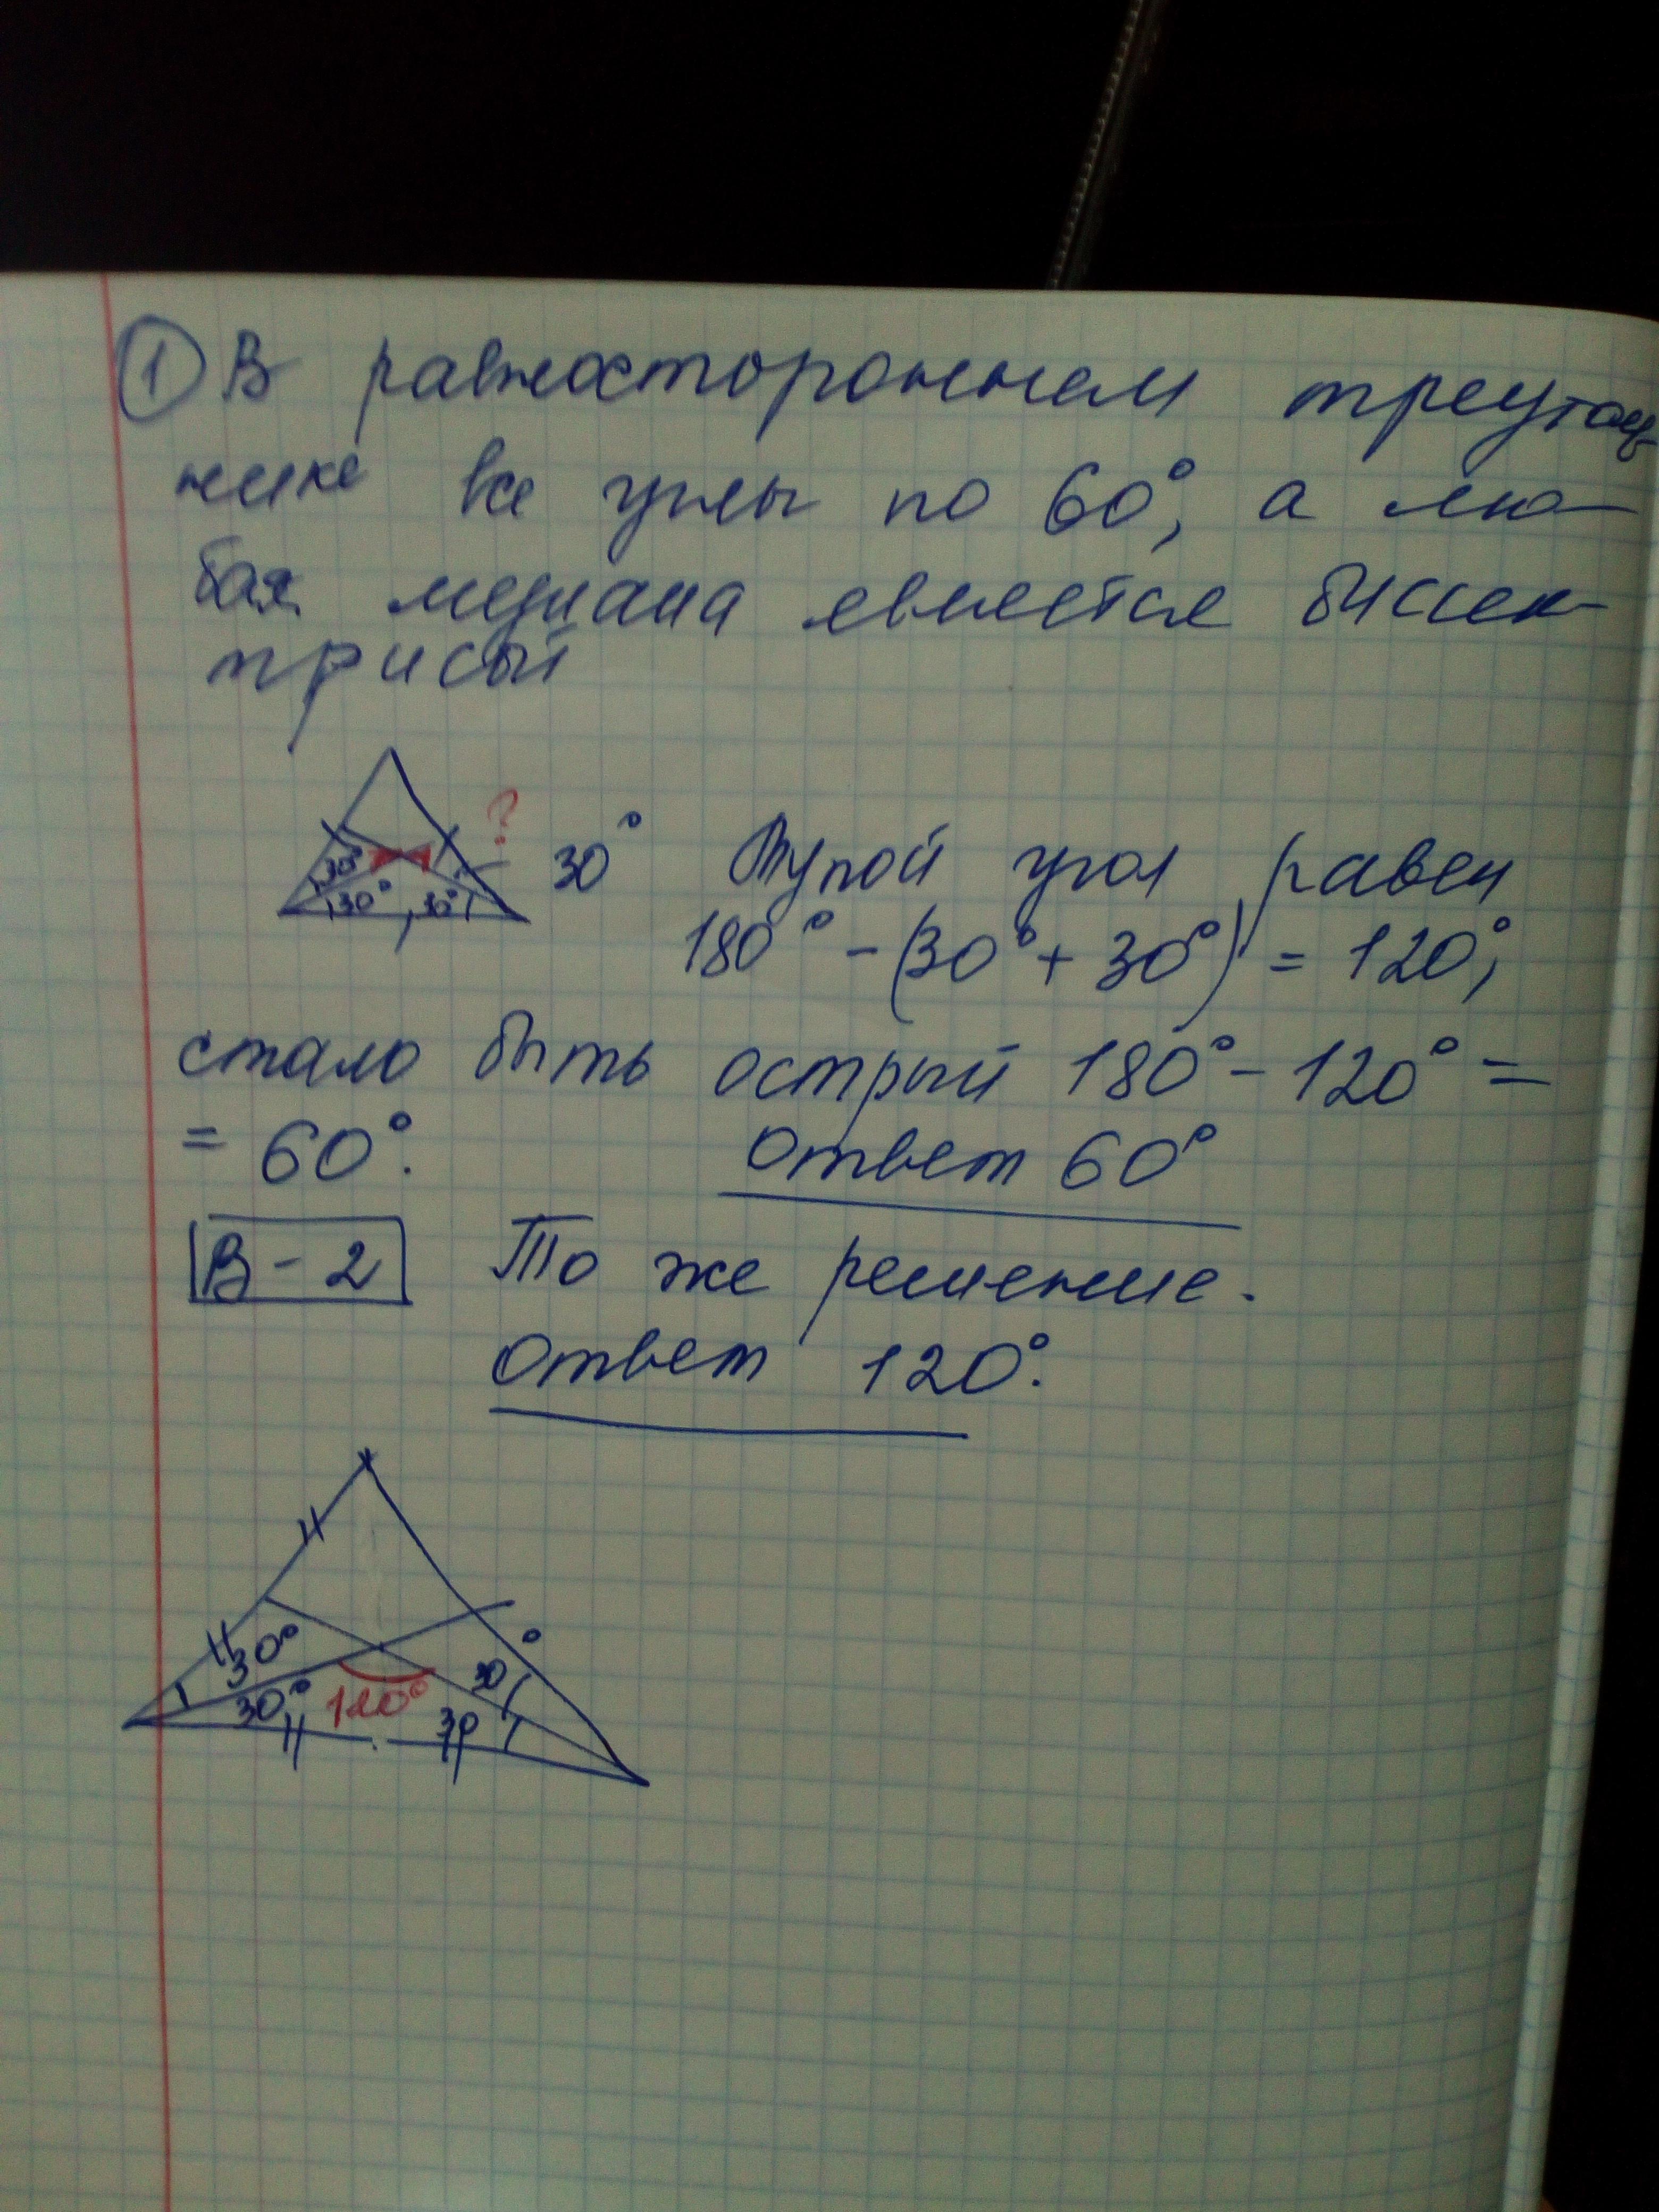 1 В равностороннем треуголь
нике все углы по 60°, а лю-
бая медиана является биссек-
трисой
?
30°
30° 30° 30°
Тупой угол равен
180° - (30° + 30°) = 120°,
стало быть острый 180° - 120° =
= 60°. Ответ 60°
В - 2 То же решение.
Ответ 120°.
30° 30°
30° 120° 30